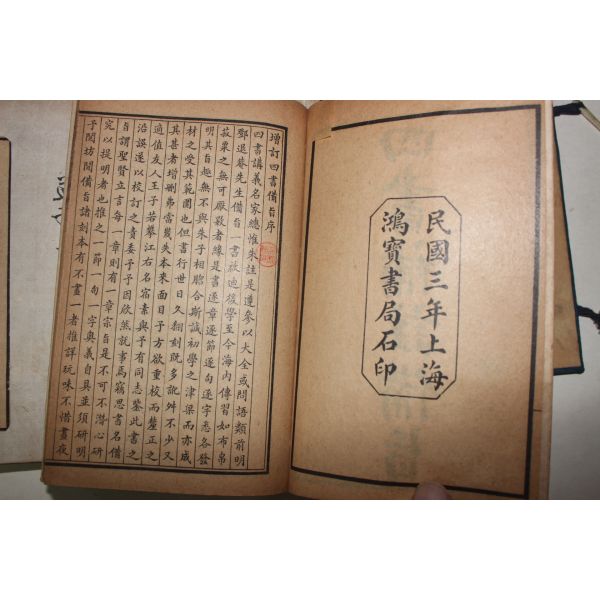 民國三年上海
鴻寶書局石印
增訂四書備旨序
四書講義名家總惟朱註是遵參以大全或問語類前明
鄧退菴先生備旨一書啟迪後學至今海內傳習如布帛
菽粟之無可厭斁者緣是書逐章逐節逐句逐字悉各發
明其旨趣無不與朱子相脗合斯誠初學之津梁而亦成
材之受其範圍也但書行世日久翻刻既多訛舛不少又
其甚者增删弗當幾失本來面目子方欲重校而釐正之
適值友人王子若擧江右名宿素與予有同志鑒此書之
沿誤遂以校訂之責委予予因欣然就事焉竊思書名備
旨謂聖賢立言每一章則有一章宗旨是不可不潛心研
究以提明者也推之一節一句一字奧義自具並須研明
予閱坊間備旨諸刻本有不盡一者推詳玩味不惜晝夜